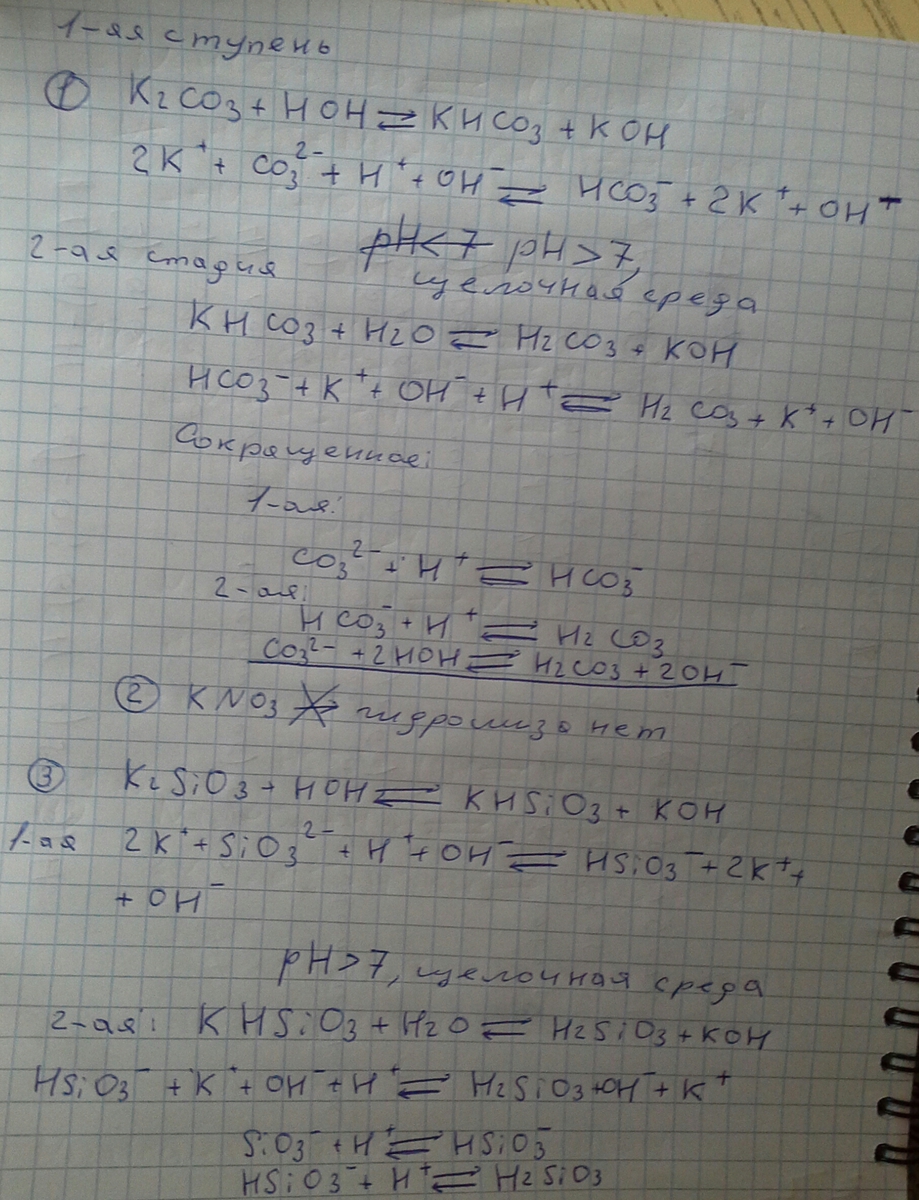 1-ая ступень
① K₂CO₃ + HOH ⇄ KHCO₃ + KOH
2K⁺ + CO₃²⁻ + H⁺ + OH⁻ ⇄ HCO₃⁻ + 2K⁺ + OH⁺
p̶H̶<̶7̶ pH > 7,
2-ая стадия
щелочная среда
KHCO₃ + H₂O ⇄ H₂CO₃ + KOH
HCO₃⁻ + K⁺ + OH⁻ + H⁺ ⇄ H₂CO₃ + K⁺ + OH⁻
Сокращенное:
1-ая:
CO₃²⁻ + H⁺ ⇄ HCO₃⁻
2-ая:
HCO₃⁻ + H⁺ ⇄ H₂CO₃
CO₃²⁻ + 2HOH ⇄ H₂CO₃ + 2OH⁻
② KNO₃ ⇄̸ гидролиза нет
③ K₂SiO₃ + HOH ⇄ KHSiO₃ + KOH
1-ая 2K⁺ + SiO₃²⁻ + H⁺ + OH⁻ ⇄ HSiO₃⁻ + 2K⁺ +
+ OH⁻
pH > 7, щелочная среда
2-ая: KHSiO₃ + H₂O ⇄ H₂SiO₃ + KOH
HSiO₃⁻ + K⁺ + OH⁻ + H⁺ ⇄ H₂SiO₃ + OH⁻ + K⁺
SiO₃⁻ + H⁺ ⇄ HSiO₃⁻
HSiO₃⁻ + H⁺ ⇄ H₂SiO₃